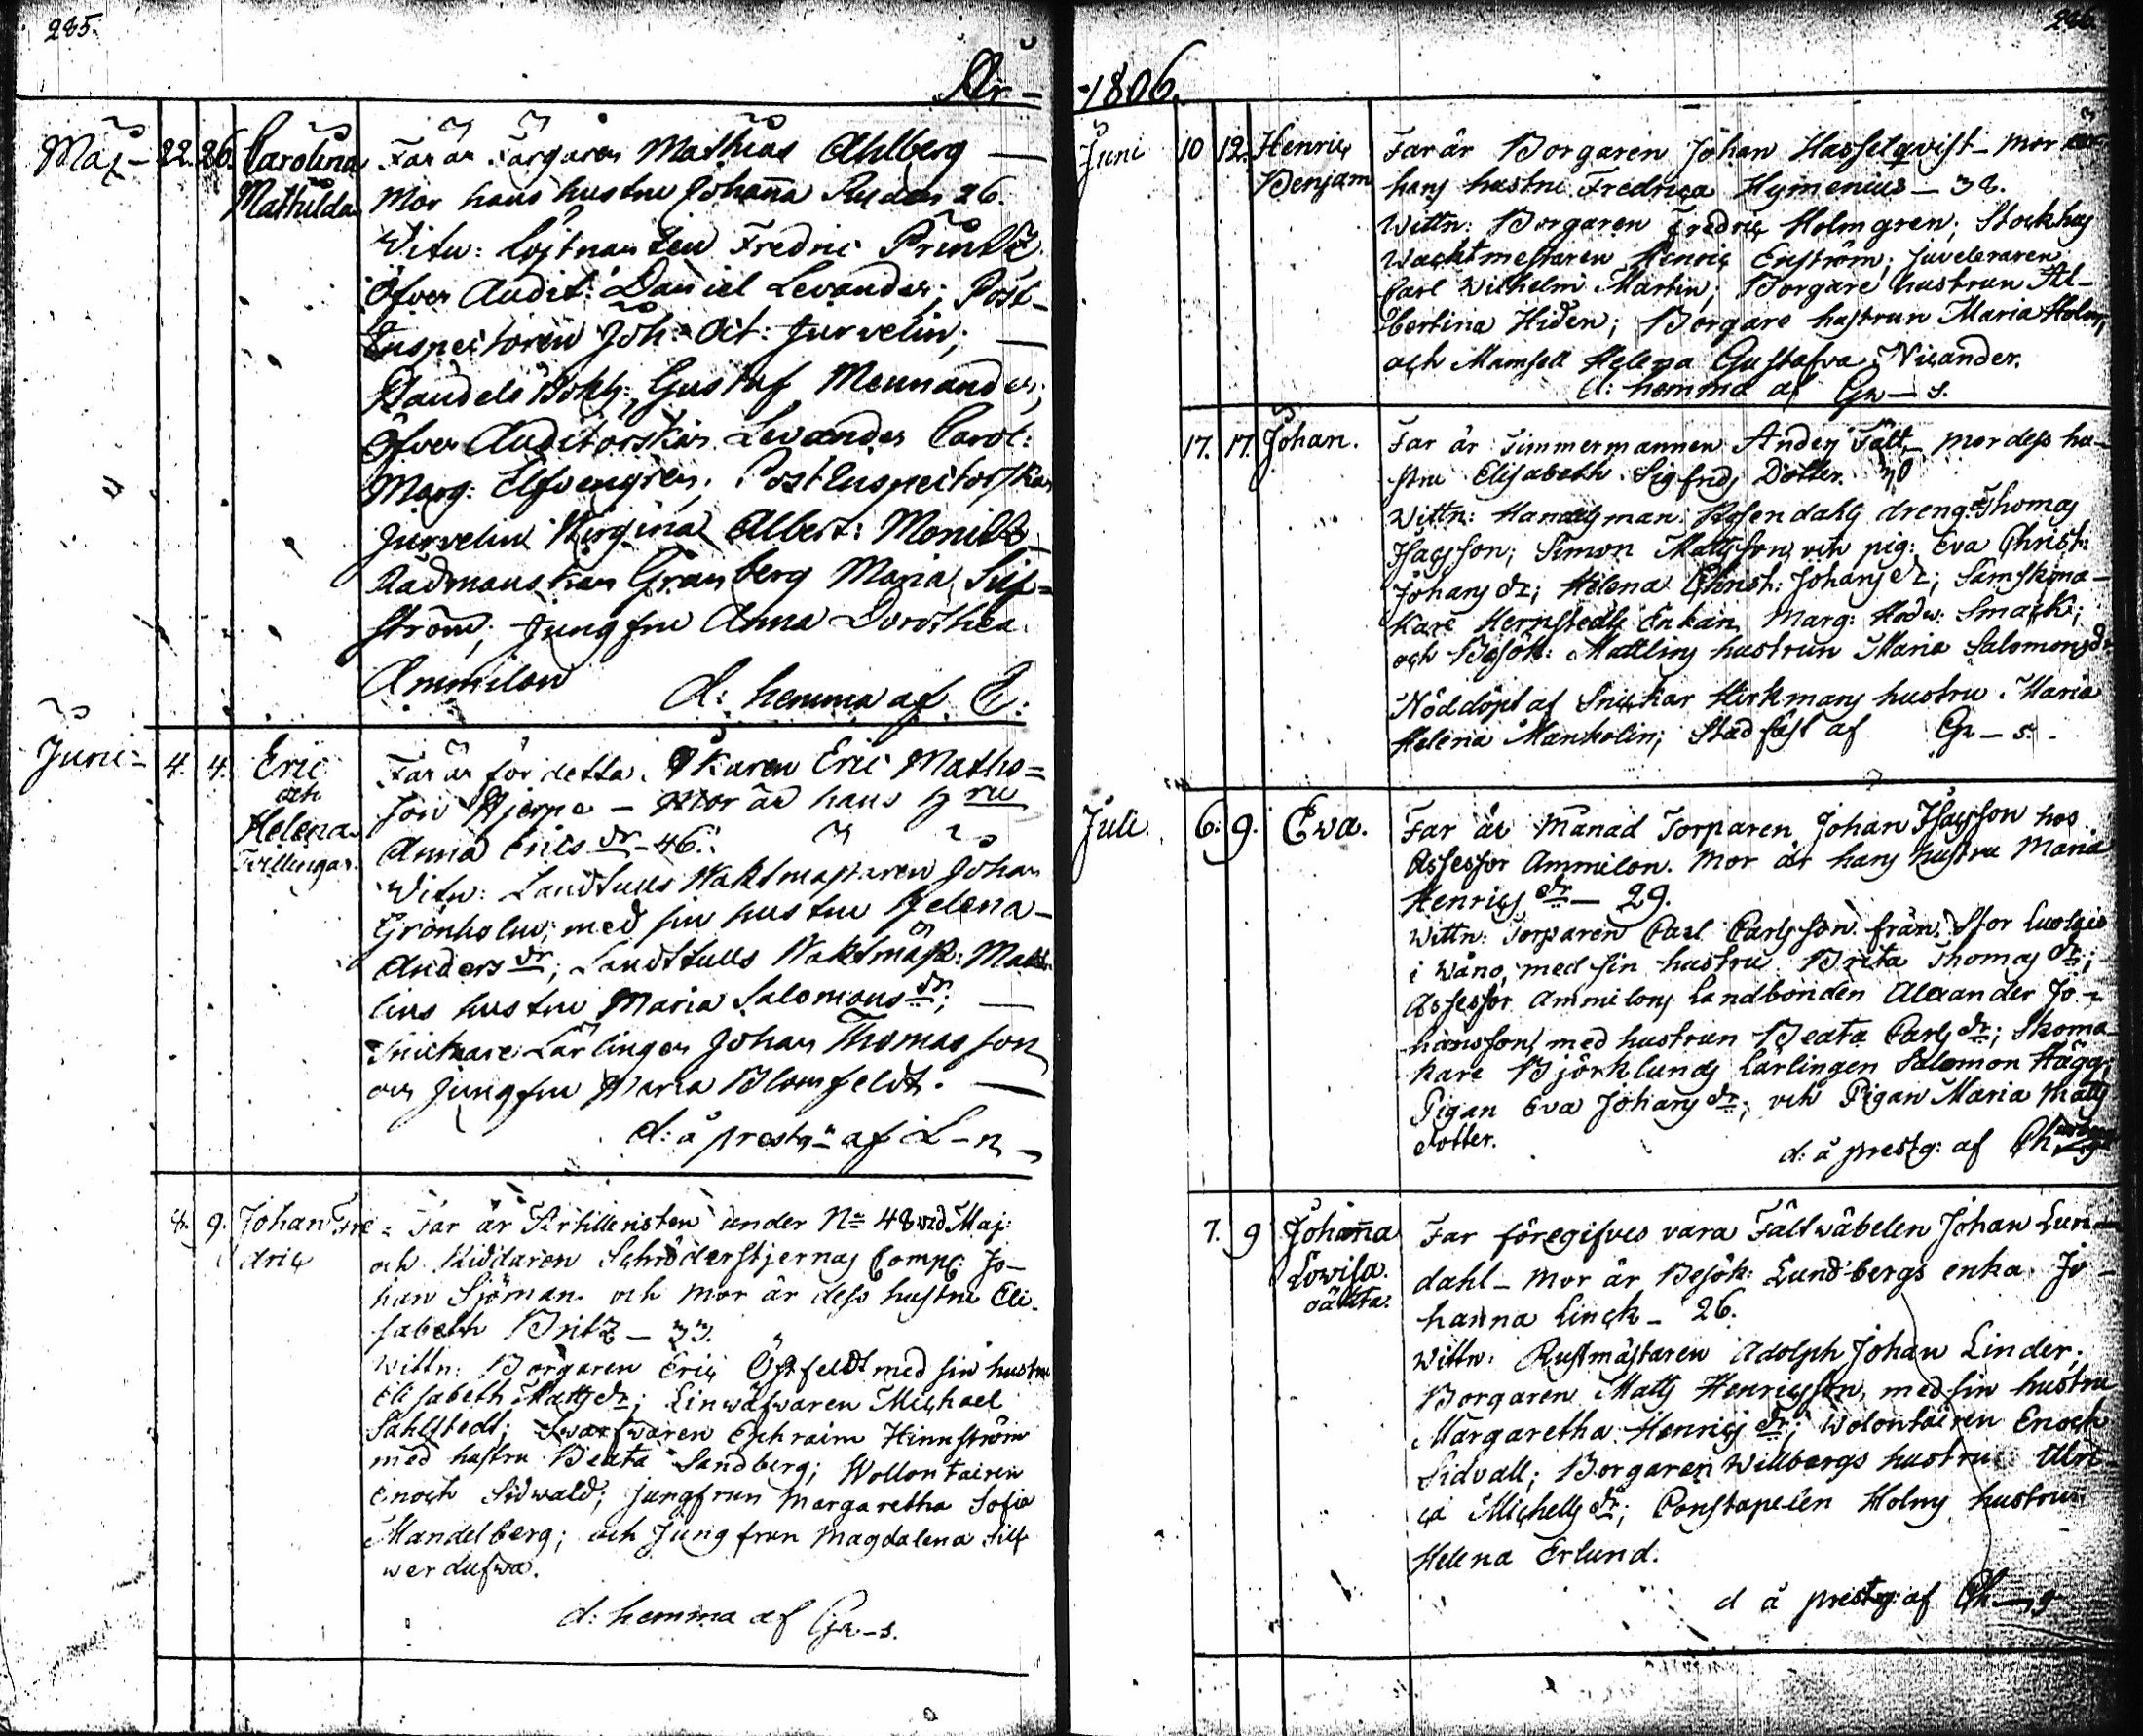 285.
År -
Maj - 22. 26. Carolina Far är Färgaren Mathias Ahlberg —
Mathilda Mor hans hustru Johanna Rydén 26.
Witn: Löjtnanten Fredric Printz
Öfver Audit: Daniel Levander; Post-
Inspectoren Joh: Oct: Jurvelin; —
Handels Bokh: Gustaf Mennander,
Öfver Auditörskan Levander Carol:
Marg: Elfvengren; PostInspectorskan
Jurvelin Virgina Albert: Moniltz
Rådmanskan Granberg Maria Silf=
ström; Jungfru Anna Dorothea
Ammilon
d: hemma af C:
Juni - 4. 4. Eric Far är för detta Åkaren Eric Maths=
och son Hjerpe — Mor är hans hru
Helena Anna Erics dr - 46.
Tvillingar. Witn: Landtulls Waktmästaren Johan
Grönholm, med sin hustru Helena
Anders dr; Landttulls Waktmäst:
lins hustru Maria Salomons dr; —
Snickare Lärlingen Johan Thomasson
och Jungfru Maria Blomfeldt. —
d: å prestg: af L-n
8. 9. Johan Fre= Far är Artilleristen under No 48 vid Maj:
dric och Riddaren Schröderstjernas Comp: Jo-
han Sjöman och Mor är dess hustru Eli-
sabeth Britz — 33.
Wittn: Borgaren Eric Östfeldt med sin hustru
Elisabeth Matts dr; Linwäfwaren Michael
Sahlstedt; Swarfwaren Ephraim Hinnström
med hustru Beata Sandberg; Wollontairen
Enoch Sidwald; Jungfrun Margaretha Sofia
Mandelberg; och Jungfrun Magdalena Silf
werdufwa.
d: hemma af Gr-s.
286.
1806.
Juni 10 12. Henric Far är Borgaren Johan Hasselqvist - Mor är
Benjam hans hustru Fredrica Hymenius — 38.
Wittn: Borgaren Fredric Holmgren; Stockhus
Wachtmestaren Henric Enström; Juveleraren
Carl Wilhelm Martin; Borgare hustrun Al-
bertina Hiden; Borgare hustrun Maria Holm,
och Mamsell Helena Gustafva Nicander.
d: hemma af Gr—s.
17. 17. Johan. Far är Timmermannen Anders Fält - Mor dess hu-
stru Elisabeth Sigfrids Dotter. 40
Wittn: Handelsman Rosendahls dreng: Thomas
Isacsson; Simon Mattsson, och pig: Eva Christ:
Johans dr; Helena Christ: Johans dr; Sämskma-
kare Hernstedts Enkan Marg: Hedw: Smack;
och Besök: Mattlins hustrun Maria Salomonsdr
Nöddöpt af Snickar Kirkmans hustru Maria
Helena Manholin; Stadfäst af Gr—s.
Juli. 6. 9. Eva. Far är Månad Torparen Johan Isacsson hos
Assessor Ammilon. Mor är hans hustru Maria
Henrics dr — 29.
Wittn: Torparen Carl Carlsson från Stor
i Wånå, med sin hustru Brita Thomas dr;
Assessor Ammilons Landbonden Alexander Jo-
hansson, med hustrun Beata Carls dr; Skoma-
kare Björklunds Lärlingen Salomon Hägg;
Pigan Eva Johans dr; och Pigan Maria Matts
Dotter.
d: å prestg: af
7. 9 Johanna Far föregifves vara Fältwäbelen Johan Lun-
Lovisa. dahl - Mor är Besök: Lundbergs enka Jo-
oäkta. hanna Linck - 26.
Wittn: Rustmästaren Adolph Johan Linder;
Borgaren Matts Henricsson, med sin hustru
Margaretha Henrics dr; Wolontairen Enoch
Sidvall; Borgaren Willbergs hustru Ulri-
ca Michells dr; Constapelen Holms hustru
Helena Erlund.
d å prestg: af Ch—g